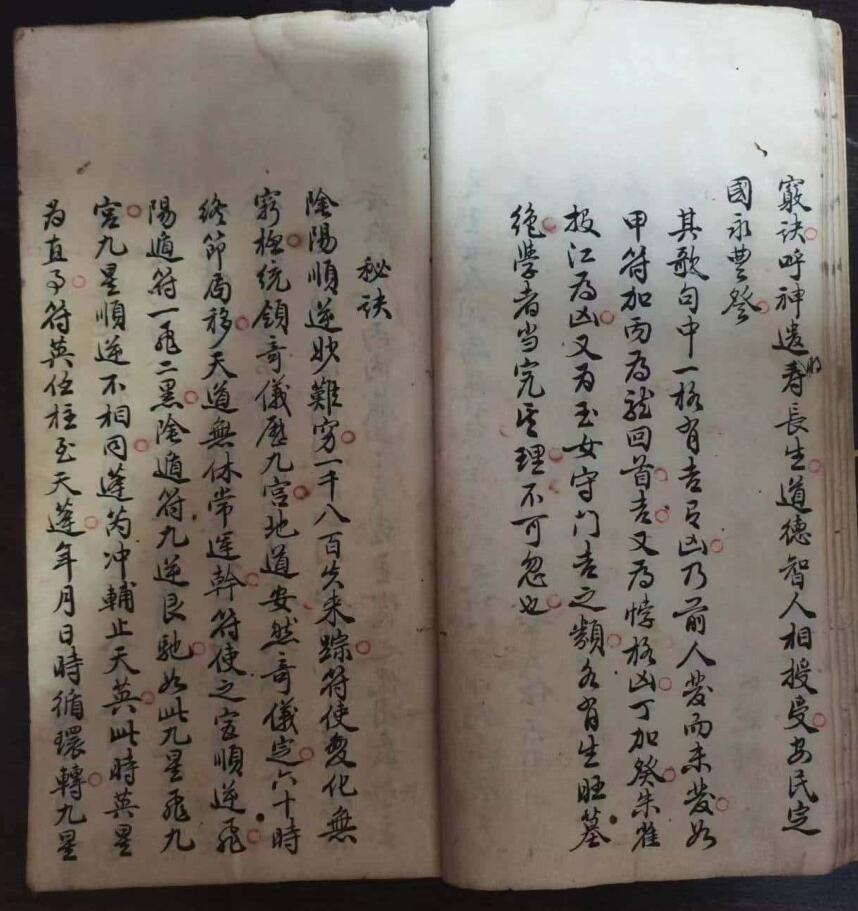 竅訣呼神遣將壽長生道德智人相授受安民定
國永豊登
其歌句中一格有吉有凶乃前人發而未發如
甲符加丙為龍回首吉又為悖格凶丁加癸朱雀
投江為凶又為玉女守門吉之類各有生旺墓
絶學者当究其理不可忽也
秘訣
陰陽順逆妙難穷一千八百失来踪符使變化無
窮極統領奇儀歷九宫地道安然奇儀定六十時
終節局移天道無休常運斡符使之宫順逆飛
陽遁符一飛二黑陰遁符九逆艮馳如此九星飛九
宫九星順逆不相同蓬芮冲輔止天英此時英星
為直符英任柱至天蓬年月日時循環轉九星